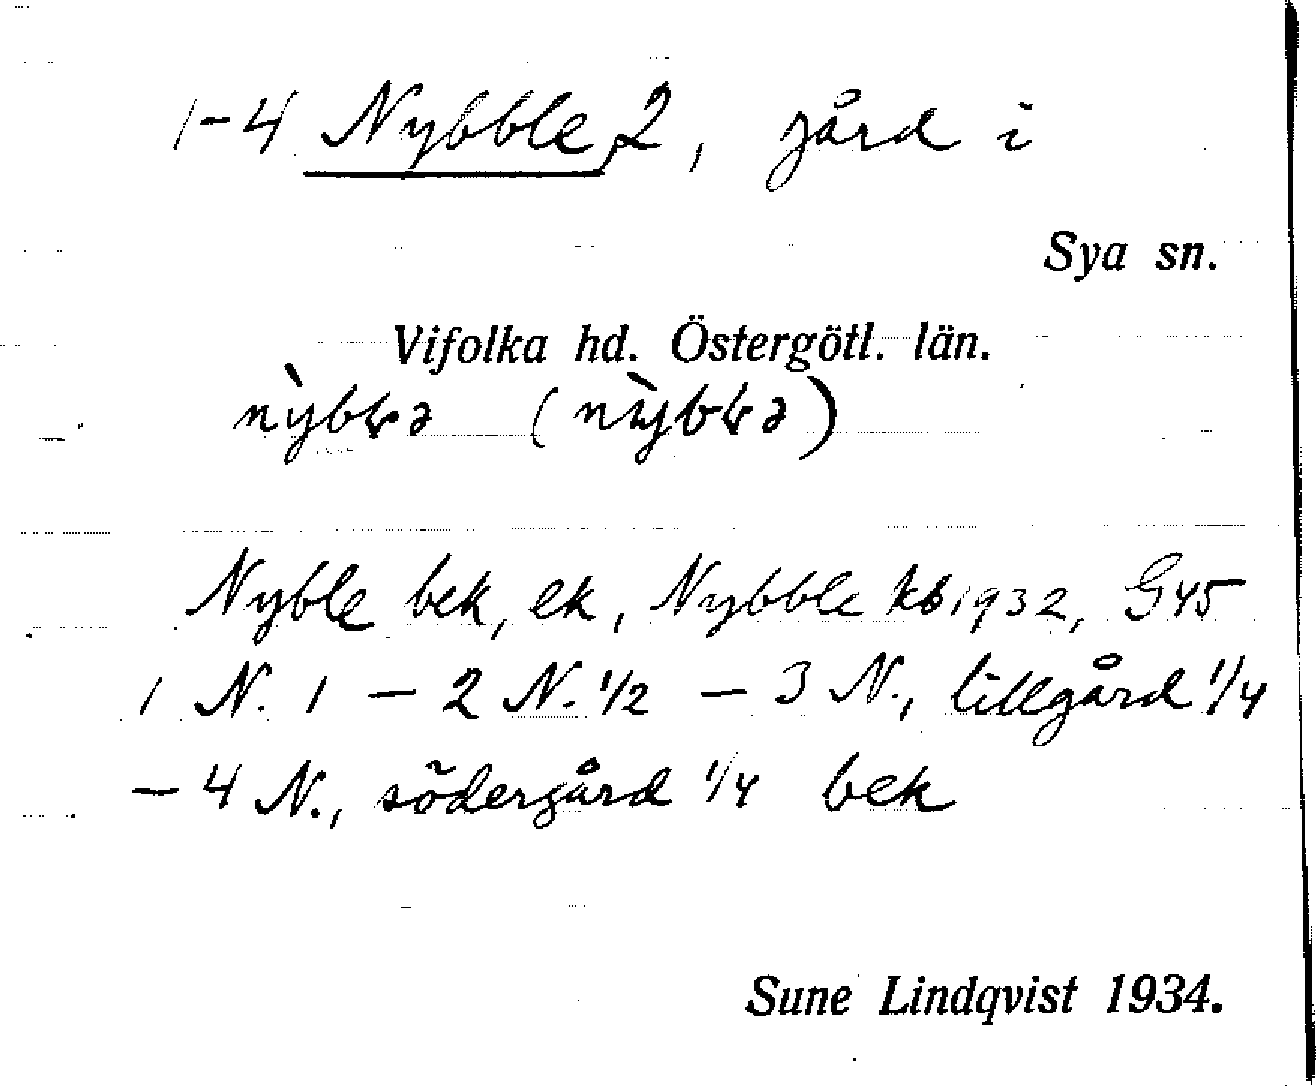 1-4 Nybble 2, gård i
Sya sn.
Vifolka hd. Östergötl. län.
Nyble bek, ek, Nybble kb 1932, G45
1 N. 1 – 2 N. 1/2 – 3 N., lillgård 1/4
– 4 N., södergård 1/4 bek
Sune Lindqvist 1934.